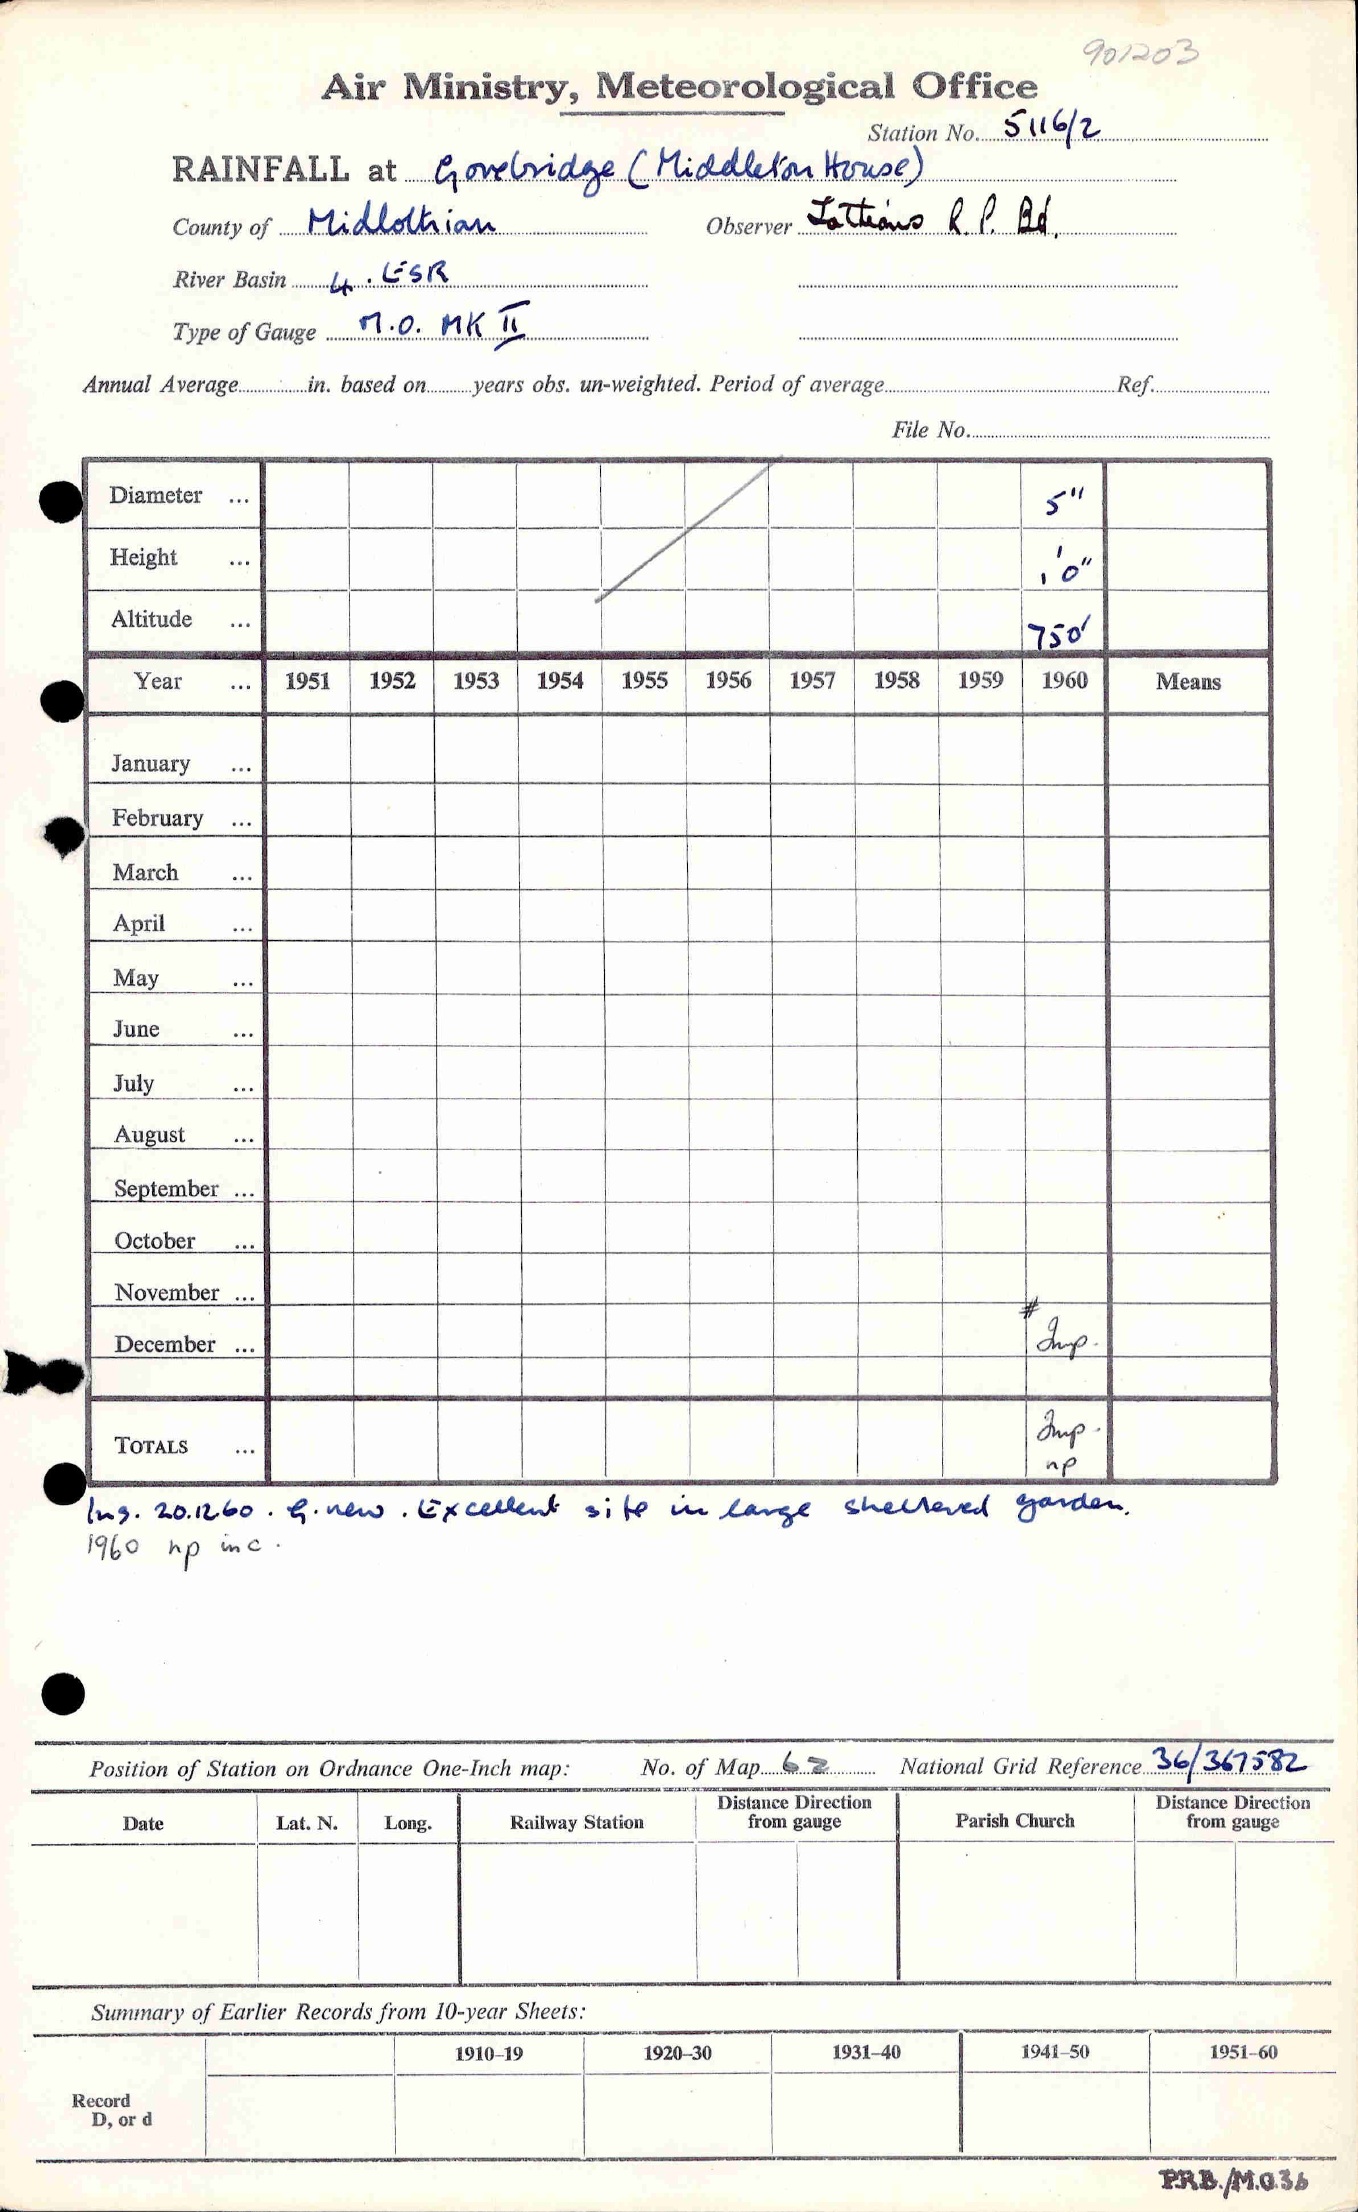 901203
Air Ministry, Meteorological Office
Station No. 5116/2
RAINFALL at Gorebridge (Middleton House)
County of Midlothian Observer Lothians R.P. Bd.
River Basin 4. ESR
Type of Gauge M.O. MK II
Annual Average in. based on years obs. un-weighted. Period of average Ref.
File No.
Diameter ... 5"
Height ... 1'0"
Altitude ... 750'
Year ... 1951 1952 1953 1954 1955 1956 1957 1958 1959 1960 Means
January ...
February ...
March ...
April ...
May ...
June ...
July ...
August ...
September ...
October ...
November ...
December ... # Imp.
TOTALS ... Imp.
np
Ins. 20.12.60. G. new. Excellent site in large sheltered garden.
1960 np inc.
Position of Station on Ordnance One-Inch map: No. of Map 62 National Grid Reference 36/367582
Date Lat. N. Long. Railway Station Distance Direction from gauge Parish Church Distance Direction from gauge
Summary of Earlier Records from 10-year Sheets:
1910–19 1920–30 1931–40 1941–50 1951–60
Record
D, or d
P.R.B./M.O.36